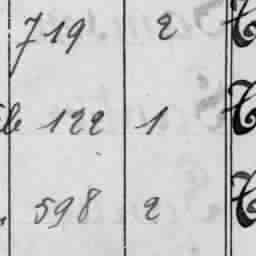 719 2
122 1
598 2